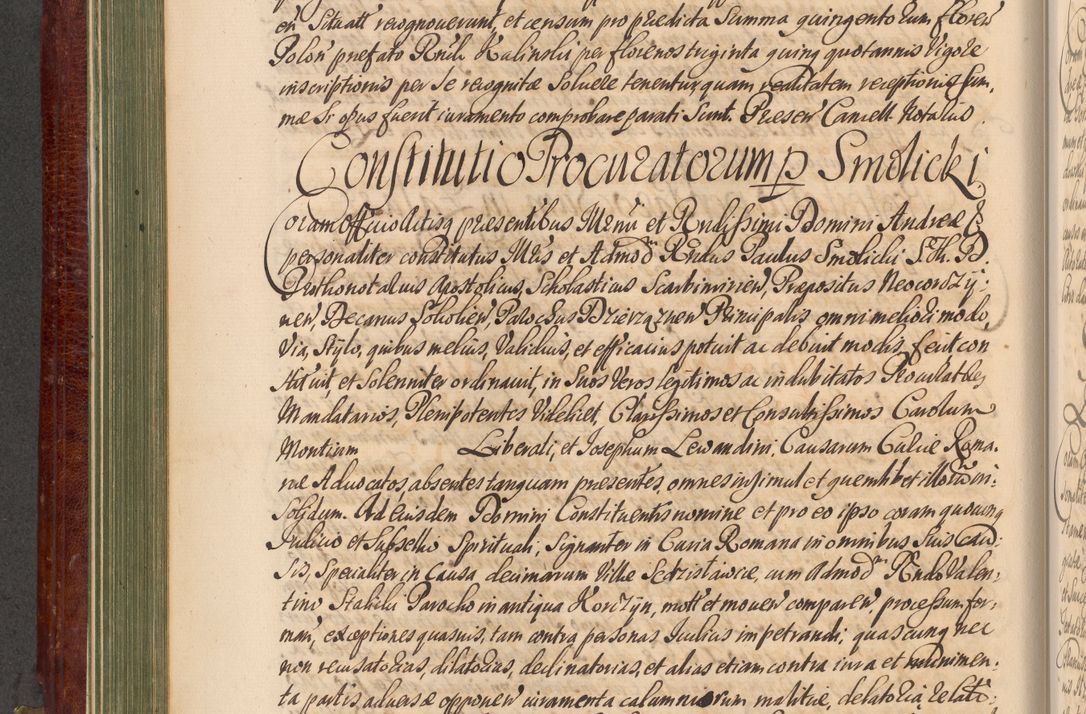 en' Sttaatt recognoverunt, et censum pro praedicta Summa quingentorum florew
Polon' praefato Rndo Kalinski per florenos triginta quinq quotannis Vigore
inscriptionis per Se recognitae Solvere tenentur, quam realitatem receptionis Sum,
mae Si opus fuerit iuramento comprobare parati Sunt. Praesen' Cancell. Notarius
Constitutio Procuratorum p Smolicki
Coram Officio Actisq praesentibus Illmi et Rndissimi Domini Andreae &
personaliter constitutus Mgis et Admod' Rndus Paulus Smolicki S. Th. D.
Prothonotarius Apostolicus, Scholasticus Scarbimirien', Praepositus Neocorczy:
nen', Decanus Sokolien', Parochus Dzierząznen' Principalis omni meliori modo,
Via, Stylo, quibus melius, Validius, et efficacius potuit ac debuit modis, fecit con
stituit, et Solenniter ordinavit, in Suos Veros legitimos ac indubitatos Procuratores
Mandatarios, Plenipotentes Videlicet, Clarissimos et Consultissimos Carolum
Montium Liberali, et Josephum Lewandini, Causarum Curiae Roma.
nae Advocatos, absentes tanquam praesentes, omnes insimul et quemlibet illorum in:
Solidum. Ad Eiusdem Domini Constituentis nomine et pro eo ipso coram quocunq
Judicio et Subsellio Spirituali, Signanter in Curia Romana in omnibus Suis Cau:
Sis, Specialiter in Causa decimarum Villae Sedzistawice, cum Admod' Rndo Valen,
tino Stabilu Parocho in antiqua Korczyn, mott' et moven' comparen', processum for,
man', exceptiones quasvis, tam contra personas Iudicis impetrandi, quascunq nec
non recusatorias, dilatorias, declinatorias, et alias etiam contra iura et munimen,
ta partis adversae opponen' iuramenta calumniorum malitiae, delatoria, relati: